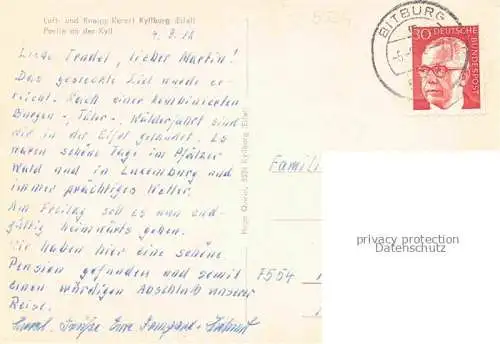 Luft- und Kneipp-Kurort Kyllburg (Eifel)
Partie an der Kyll
Liebe Traudel, lieber Martin!
Das gesteckte Ziel wurde er-
reicht. Nach einer kombinierten
Burgen-, Täler-, Wälderfahrt sind
wir in der Eifel gelandet. Es
waren schöne Tage im Pfälzer
Wald und in Luxemburg und
immer prächtiges Wetter.
Am Freitag soll es nun end-
gültig heimwärts gehen.
Wir haben hier eine schöne
Pension gefunden und somit
einen würdigen Abschluß unserer
Reise.
Grüße Eure Irmgard + Helmut
Kyllburg (Eifel)
BITBURG
30
DEUTSCHE
BUNDESPOST
Famili
7554
privacy protection
Datenschutz